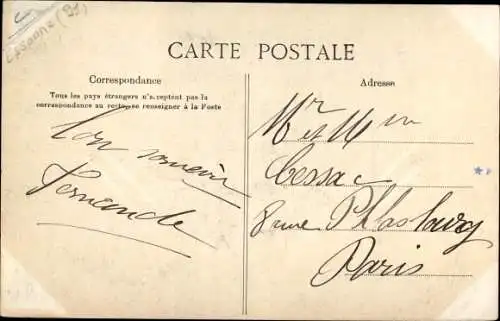 Essonne (91)
CARTE POSTALE
Correspondance
Tous les pays étrangers n'acceptent pas la
correspondance au recto, se renseigner à la Poste
Bon souvenir
Fernande
Adresse
Mr et Mme
Cessac
8 rue Phlasbourg
Paris